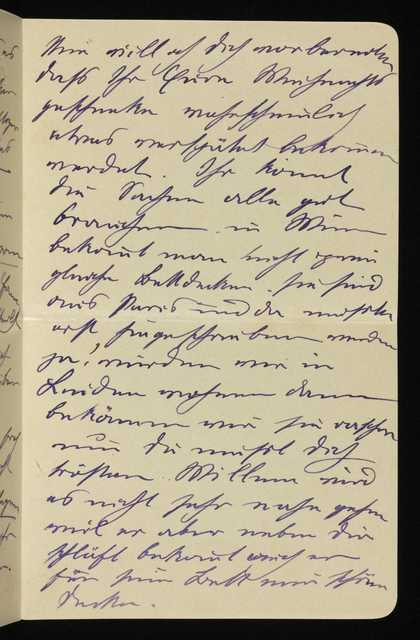 Nun will ich dich vorbereiten
dass Ihr Eure Weihnachts
geschenke wahrscheinlich
etwas verspätet bekommen
werdet. Ihr könnt
die Sachen alle gut
brauchen. in Wien
bekomt man nicht zwei
gleiche Bettdecken. sie sind
aus Paris und da mussten
erst hingeschrieben werden
ja, würden wir in
Leiden wohnen dann
bekämen wir sie rascher
nun du musst dich
trösten. Willem wird
es nicht sehr nahe gehen
weil er aber neben dir
schläft bekomt auch er
für sein Bett eine schöne
Decke.